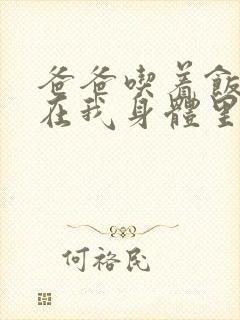 爸爸喫着飯
在我身體里
何裕民